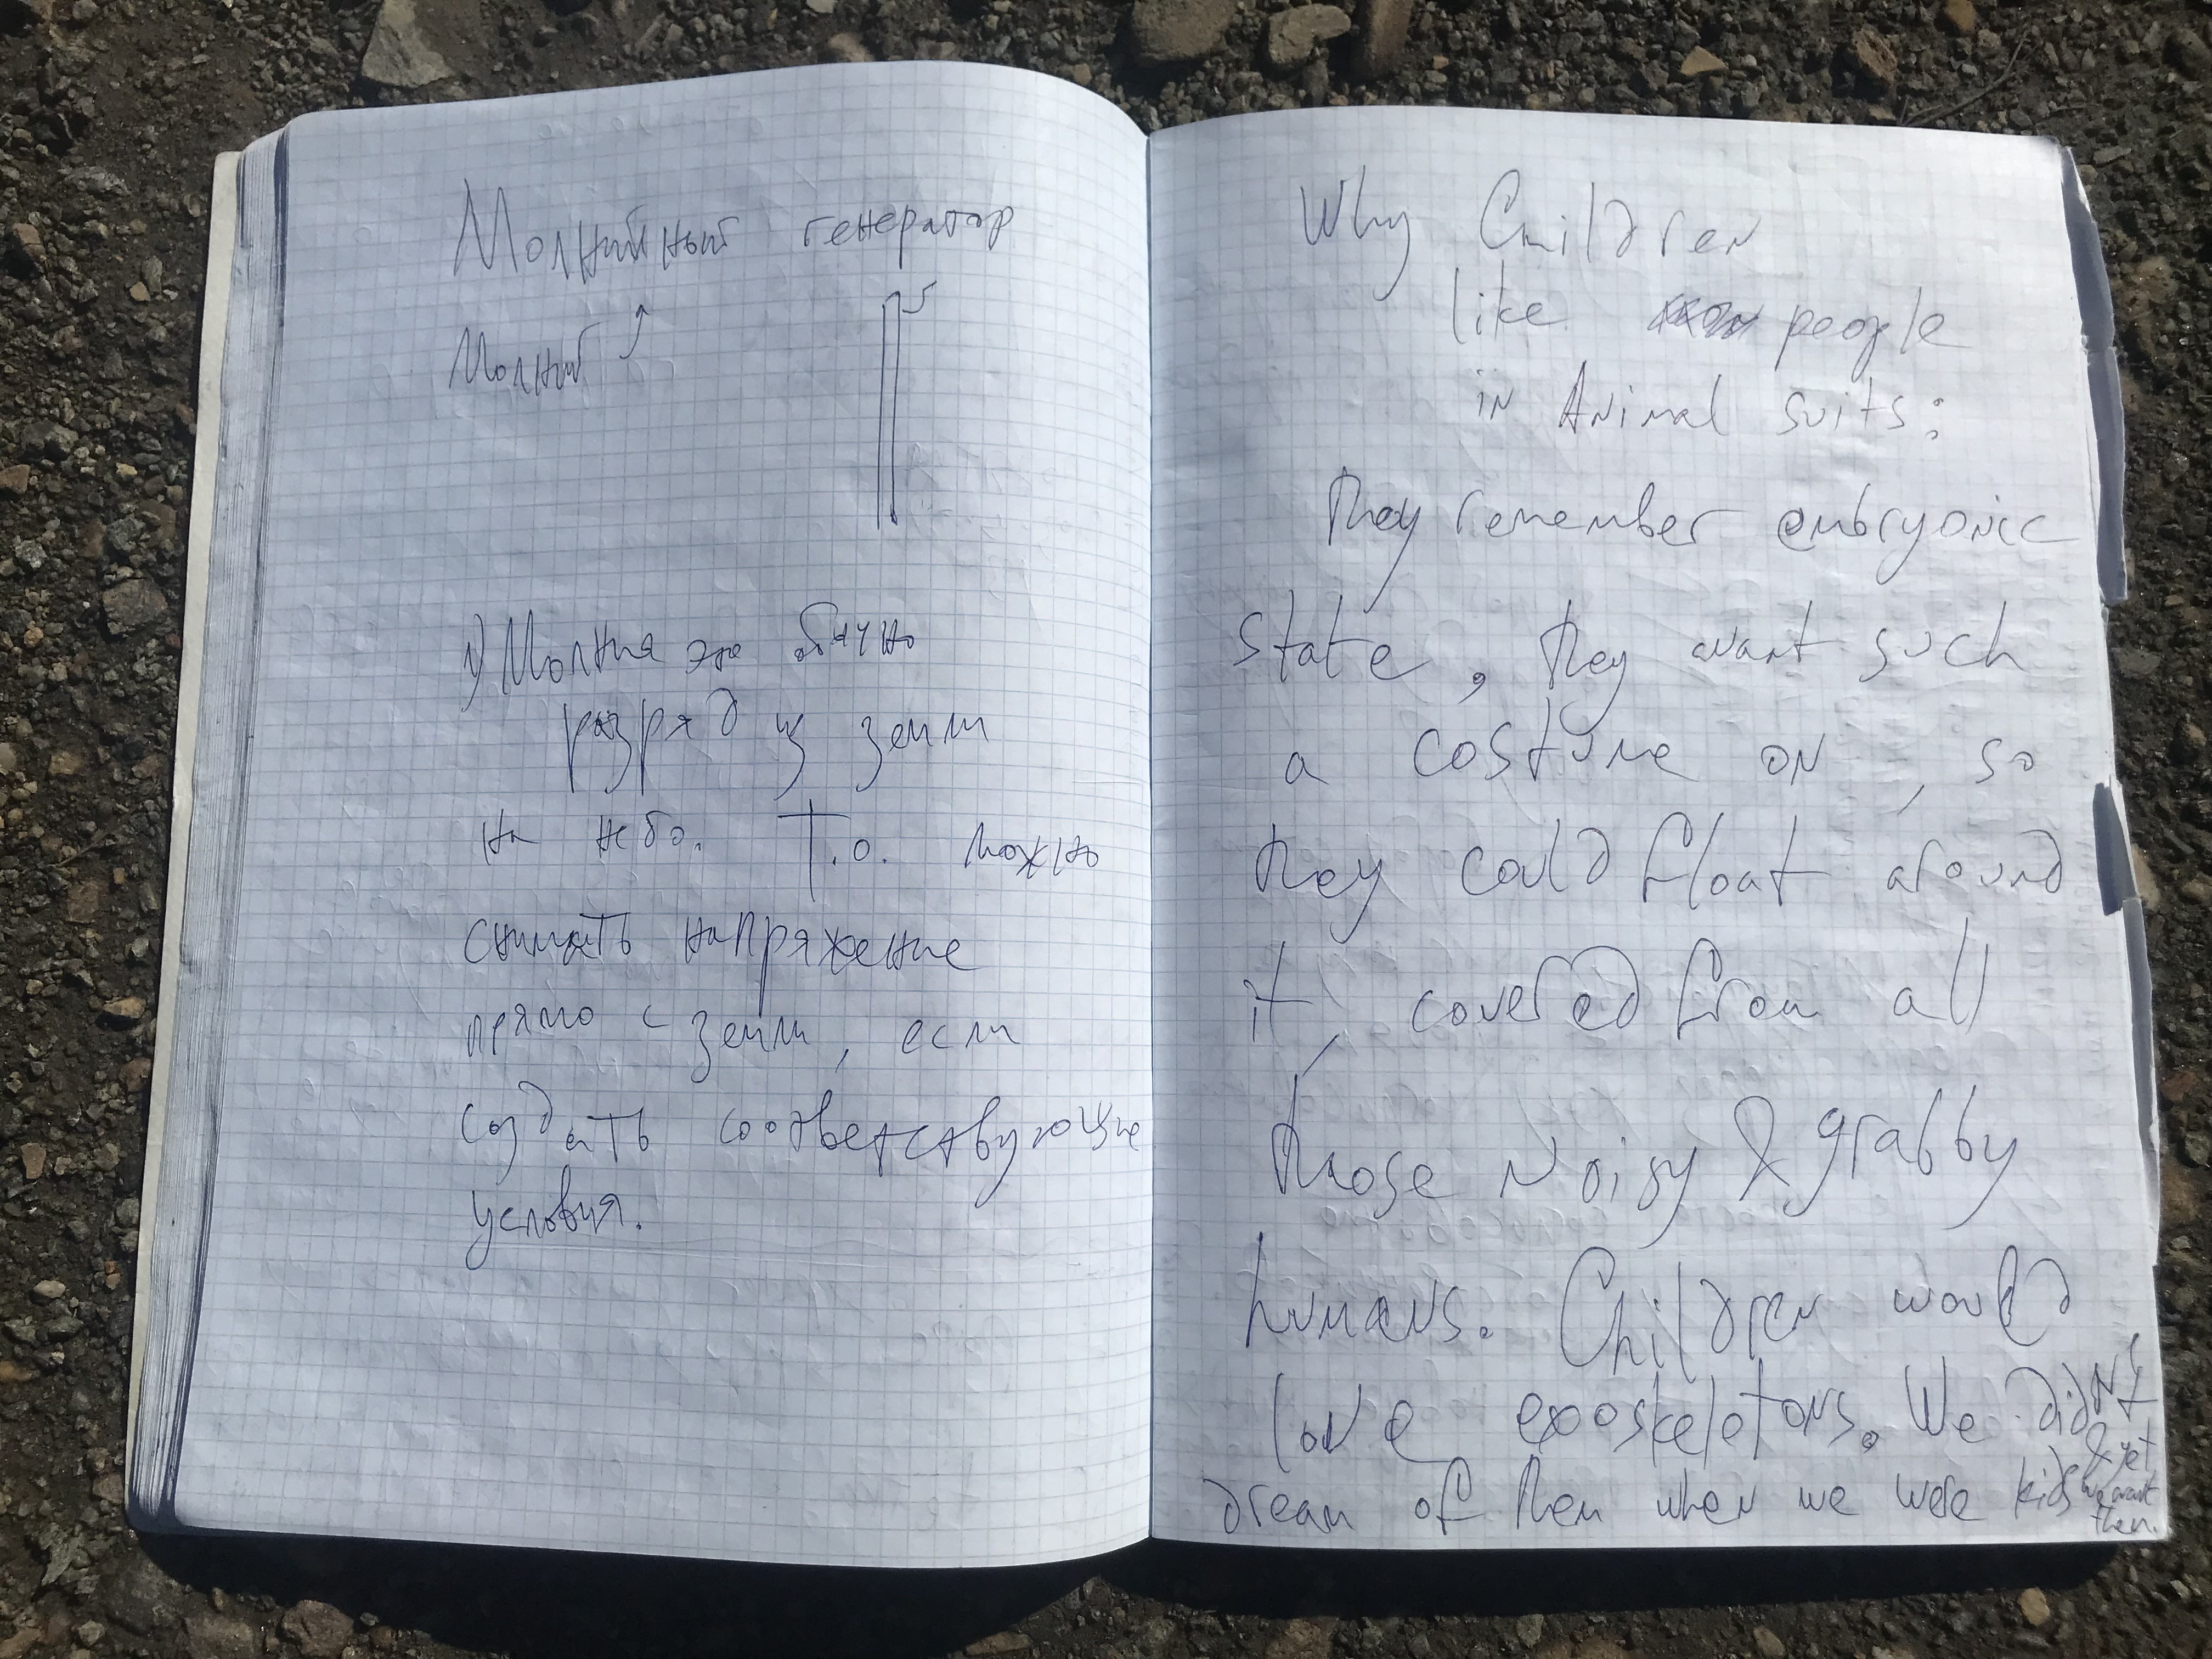 Молнийный генератор
Молний
1) Молния это обычно
разряд из земли
на небо. Т.о. можно
снимать напряжение
прямо с земли, если
создать соответствующие
условия.
Why Children
like people
in Animal suits:
They remember embryonic
state, they want such
a costume on, so
they could float around
it, covered from all
those noisy & grabby
humans. Children would
love exoskeletons. We didn't
dream of them when we were kids
& yet
we want
them.